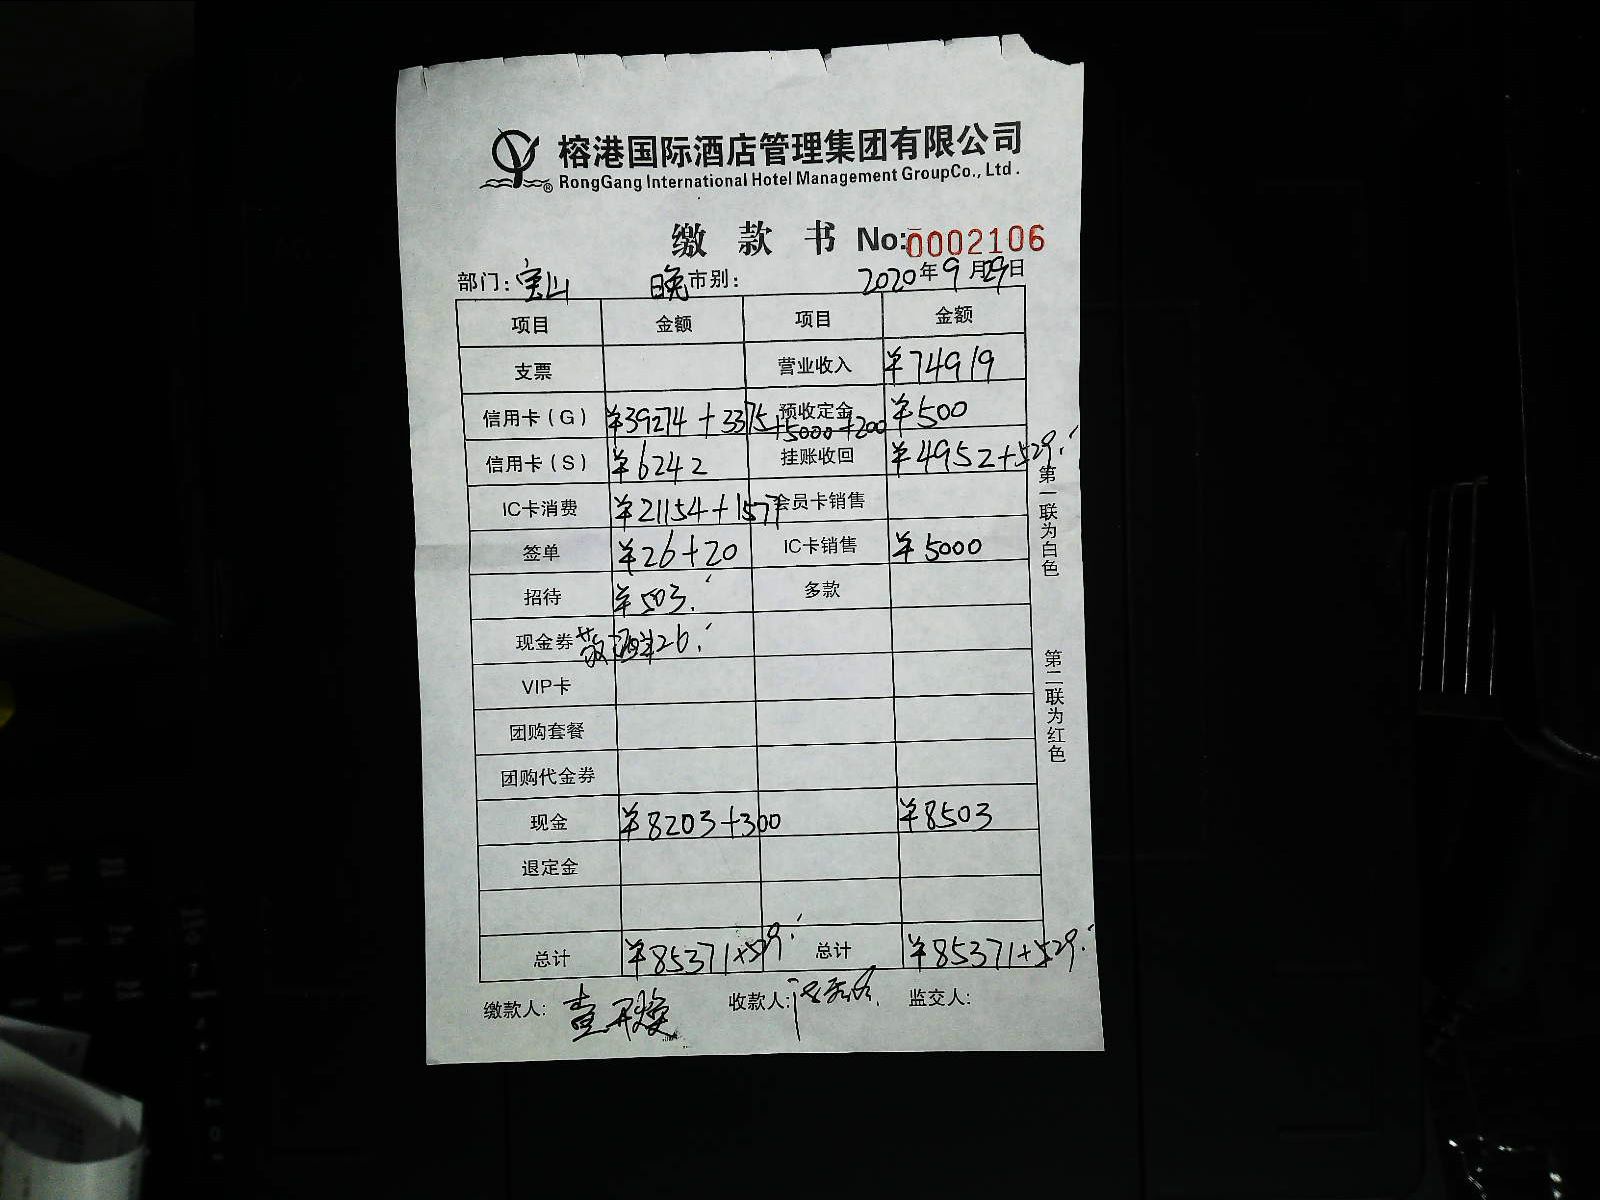 榕港国际酒店管理集团有限公司
RongGang International Hotel Management GroupCo., Ltd.
缴款书 No:0002106
部门:宝山 晚市别: 2020年9月29日
项目 金额 项目 金额
支票 营业收入 ¥74919
信用卡(G) ¥39274+3375+5000+200 预收定金 ¥500
信用卡(S) ¥6242 挂账收回 ¥4952+529.
IC卡消费 ¥21154+1577 会员卡销售
签单 ¥26+20 IC卡销售 ¥5000
招待 ¥503. 多款
现金券 酒¥26.
VIP卡
团购套餐
团购代金券
现金 ¥8203+300 ¥8503
退定金
总计 ¥85371+529. 总计 ¥85371+529.
缴款人: 收款人: 监交人:
第一联为白色
第二联为红色